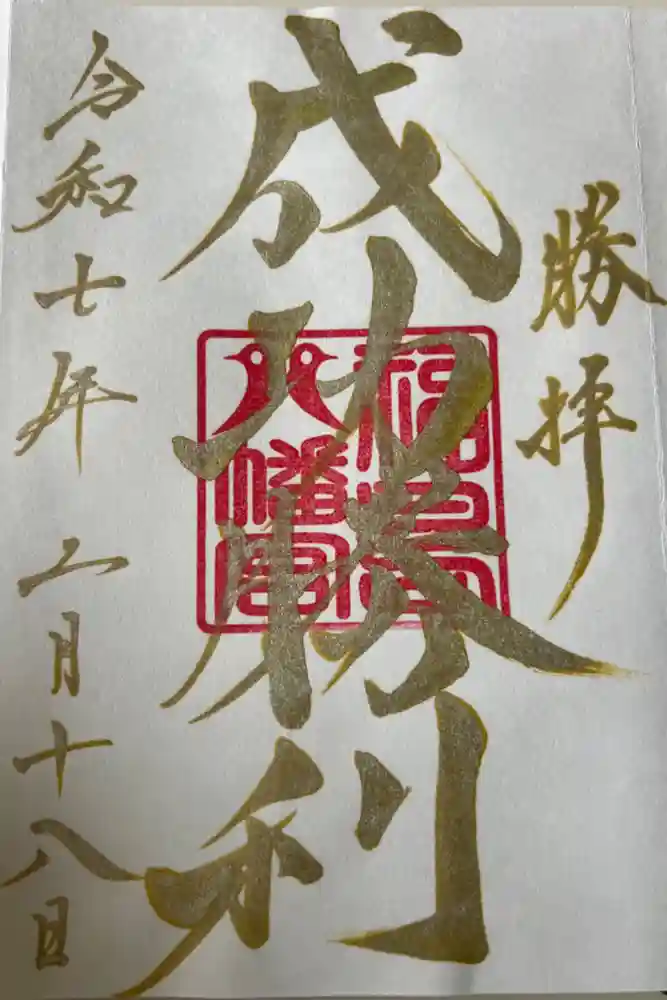 勝拝
成功勝利
八幡宮
令和七年二月十八日